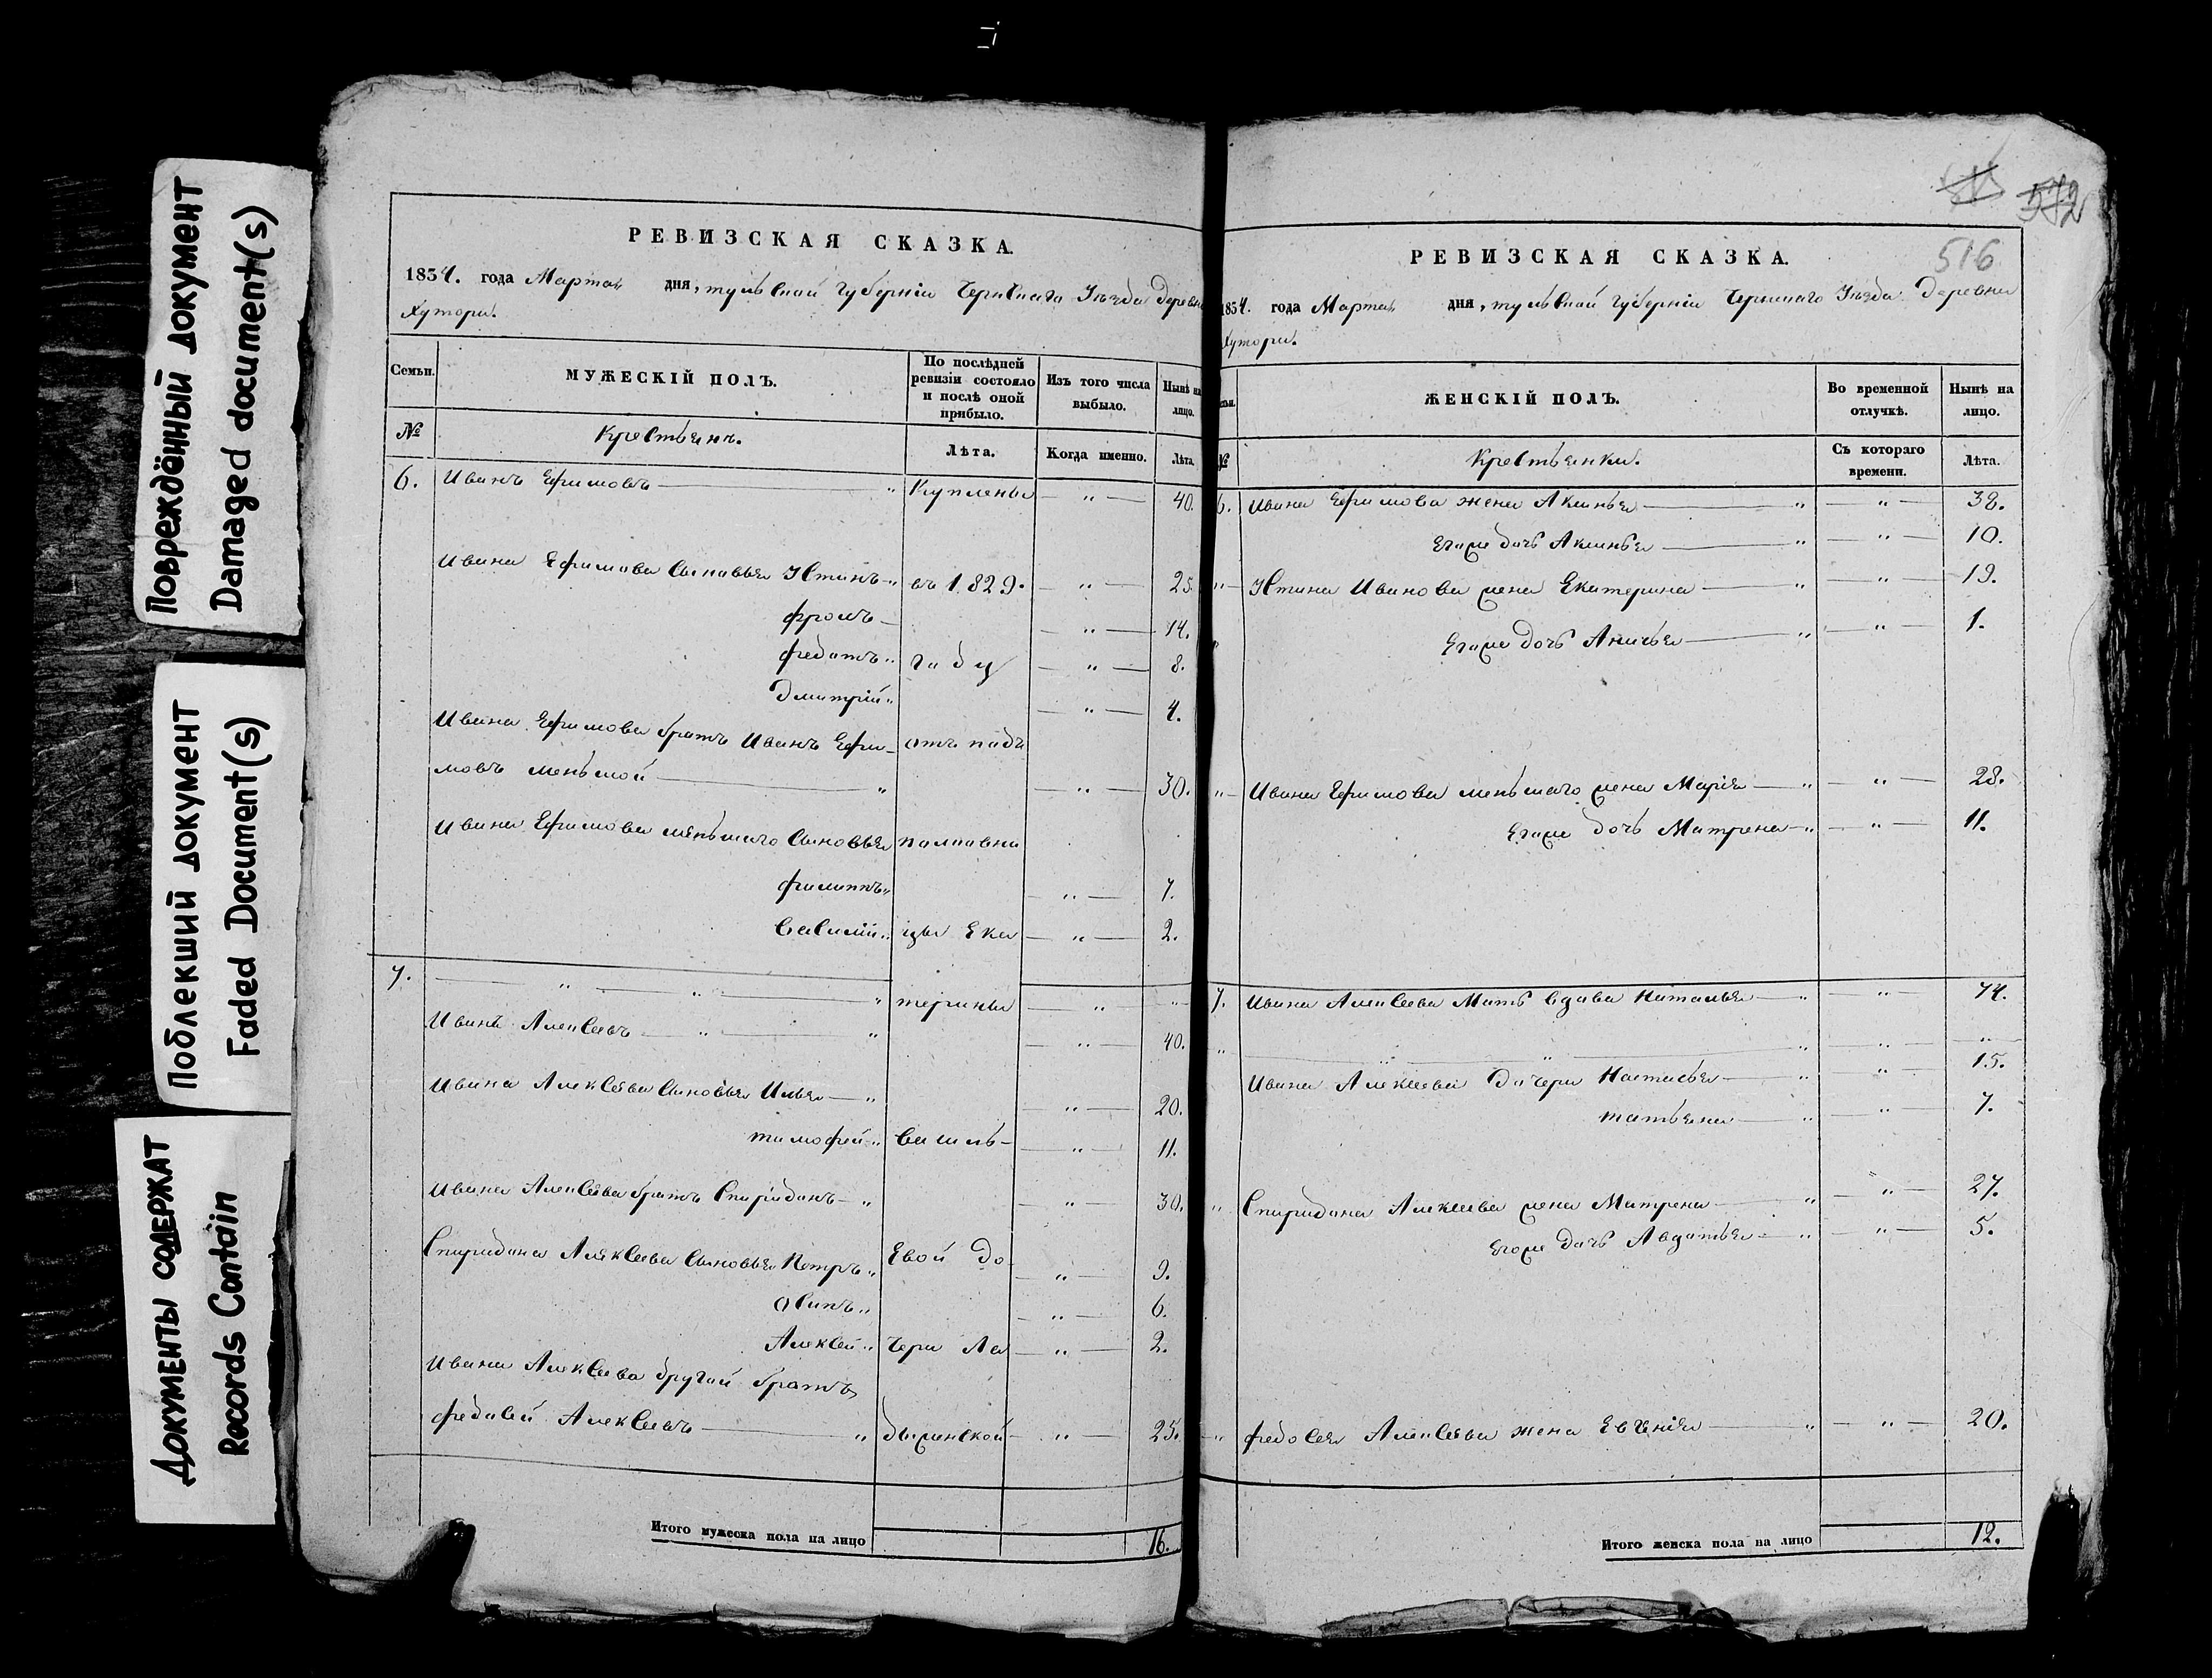 Повреждённый документ
Damaged document(s)
Поблекший документ
Faded Document(s)
Документы содержат
Records Contain
РЕВИЗСКАЯ СКАЗКА.
1834. года Марта дня, тульской губернiи Чернскаго Уѣзда деревни
Хутори.
Семьи. МУЖЕСКIЙ ПОЛЪ. По послѣдней ревизiи состояло и послѣ оной прибыло. Изъ того числа выбыло. Нынѣ на лицо.
№ Крестьянъ. Лѣта. Когда именно. Лѣта.
6. Иванъ Ефимовъ — " Куплены — " — 40.
Ивана Ефимова сыновья Устинъ — " въ 1829. — " — 25.
фролъ — — " — 14.
федотъ " году — " — 8.
Дмитрiй " — " — 4.
Ивана Ефимова братъ Иванъ Ефи- отъ подъ
мовъ меньшой — " — " — 30.
Ивана Ефимова меньшаго сыновья полковни
филиппъ " — " — 7.
Василiй " цы Ека — " — 2.
7. — " — " — " терины — " — "
Иванъ Алексеевъ — " — " — " — 40.
Ивана Алексѣева сыновья Илья — " — " — 20.
тимофей " Василь- — " — 11.
Ивана Алексѣева братъ Спиридонъ — " — " — 30.
Спиридона Алексѣева сыновья Петръ " Евой до — " — 9.
Осипъ " — " — 6.
Алексей " чери Ла — " — 2.
Ивана Алексѣева другой братъ
федосей Алексеевъ — " дыженской — " — 25.
Итого мужеска пола на лицо 16.
572
516
РЕВИЗСКАЯ СКАЗКА.
1834. года Марта дня, тульской губернiи Чернскаго Уѣзда Деревни
Хутори.
ЖЕНСКIЙ ПОЛЪ. Во временной отлучкѣ. Нынѣ на лицо.
№ Крестьянки. Съ котораго времени. Лѣта.
6. Ивана Ефимова жена Акинья — " — " — 38.
Егоже дочь Акинья — " — " — 10.
" Устина Иванова жена Екатерина — " — " — 19.
" Егоже дочь Анисья — " — " — 1.
" Ивана Ефимова меньшаго жена Марiя — " — " — 28.
Егоже дочь Матрена — " — " — 11.
7. Ивана Алексеева Мать вдова Наталья — " — " — 74.
" — " — " — " — " — "
Ивана Алексеева дочери Настасья — " — " — 15.
татьяна — " — " — 7.
" Спиридона Алексеева жена Матрена — " — " — 27.
Егоже дочь Авдотья — " — " — 5.
" федосея Алексѣева жена Евгенiя — " — " — 20.
Итого женска пола на лицо 12.